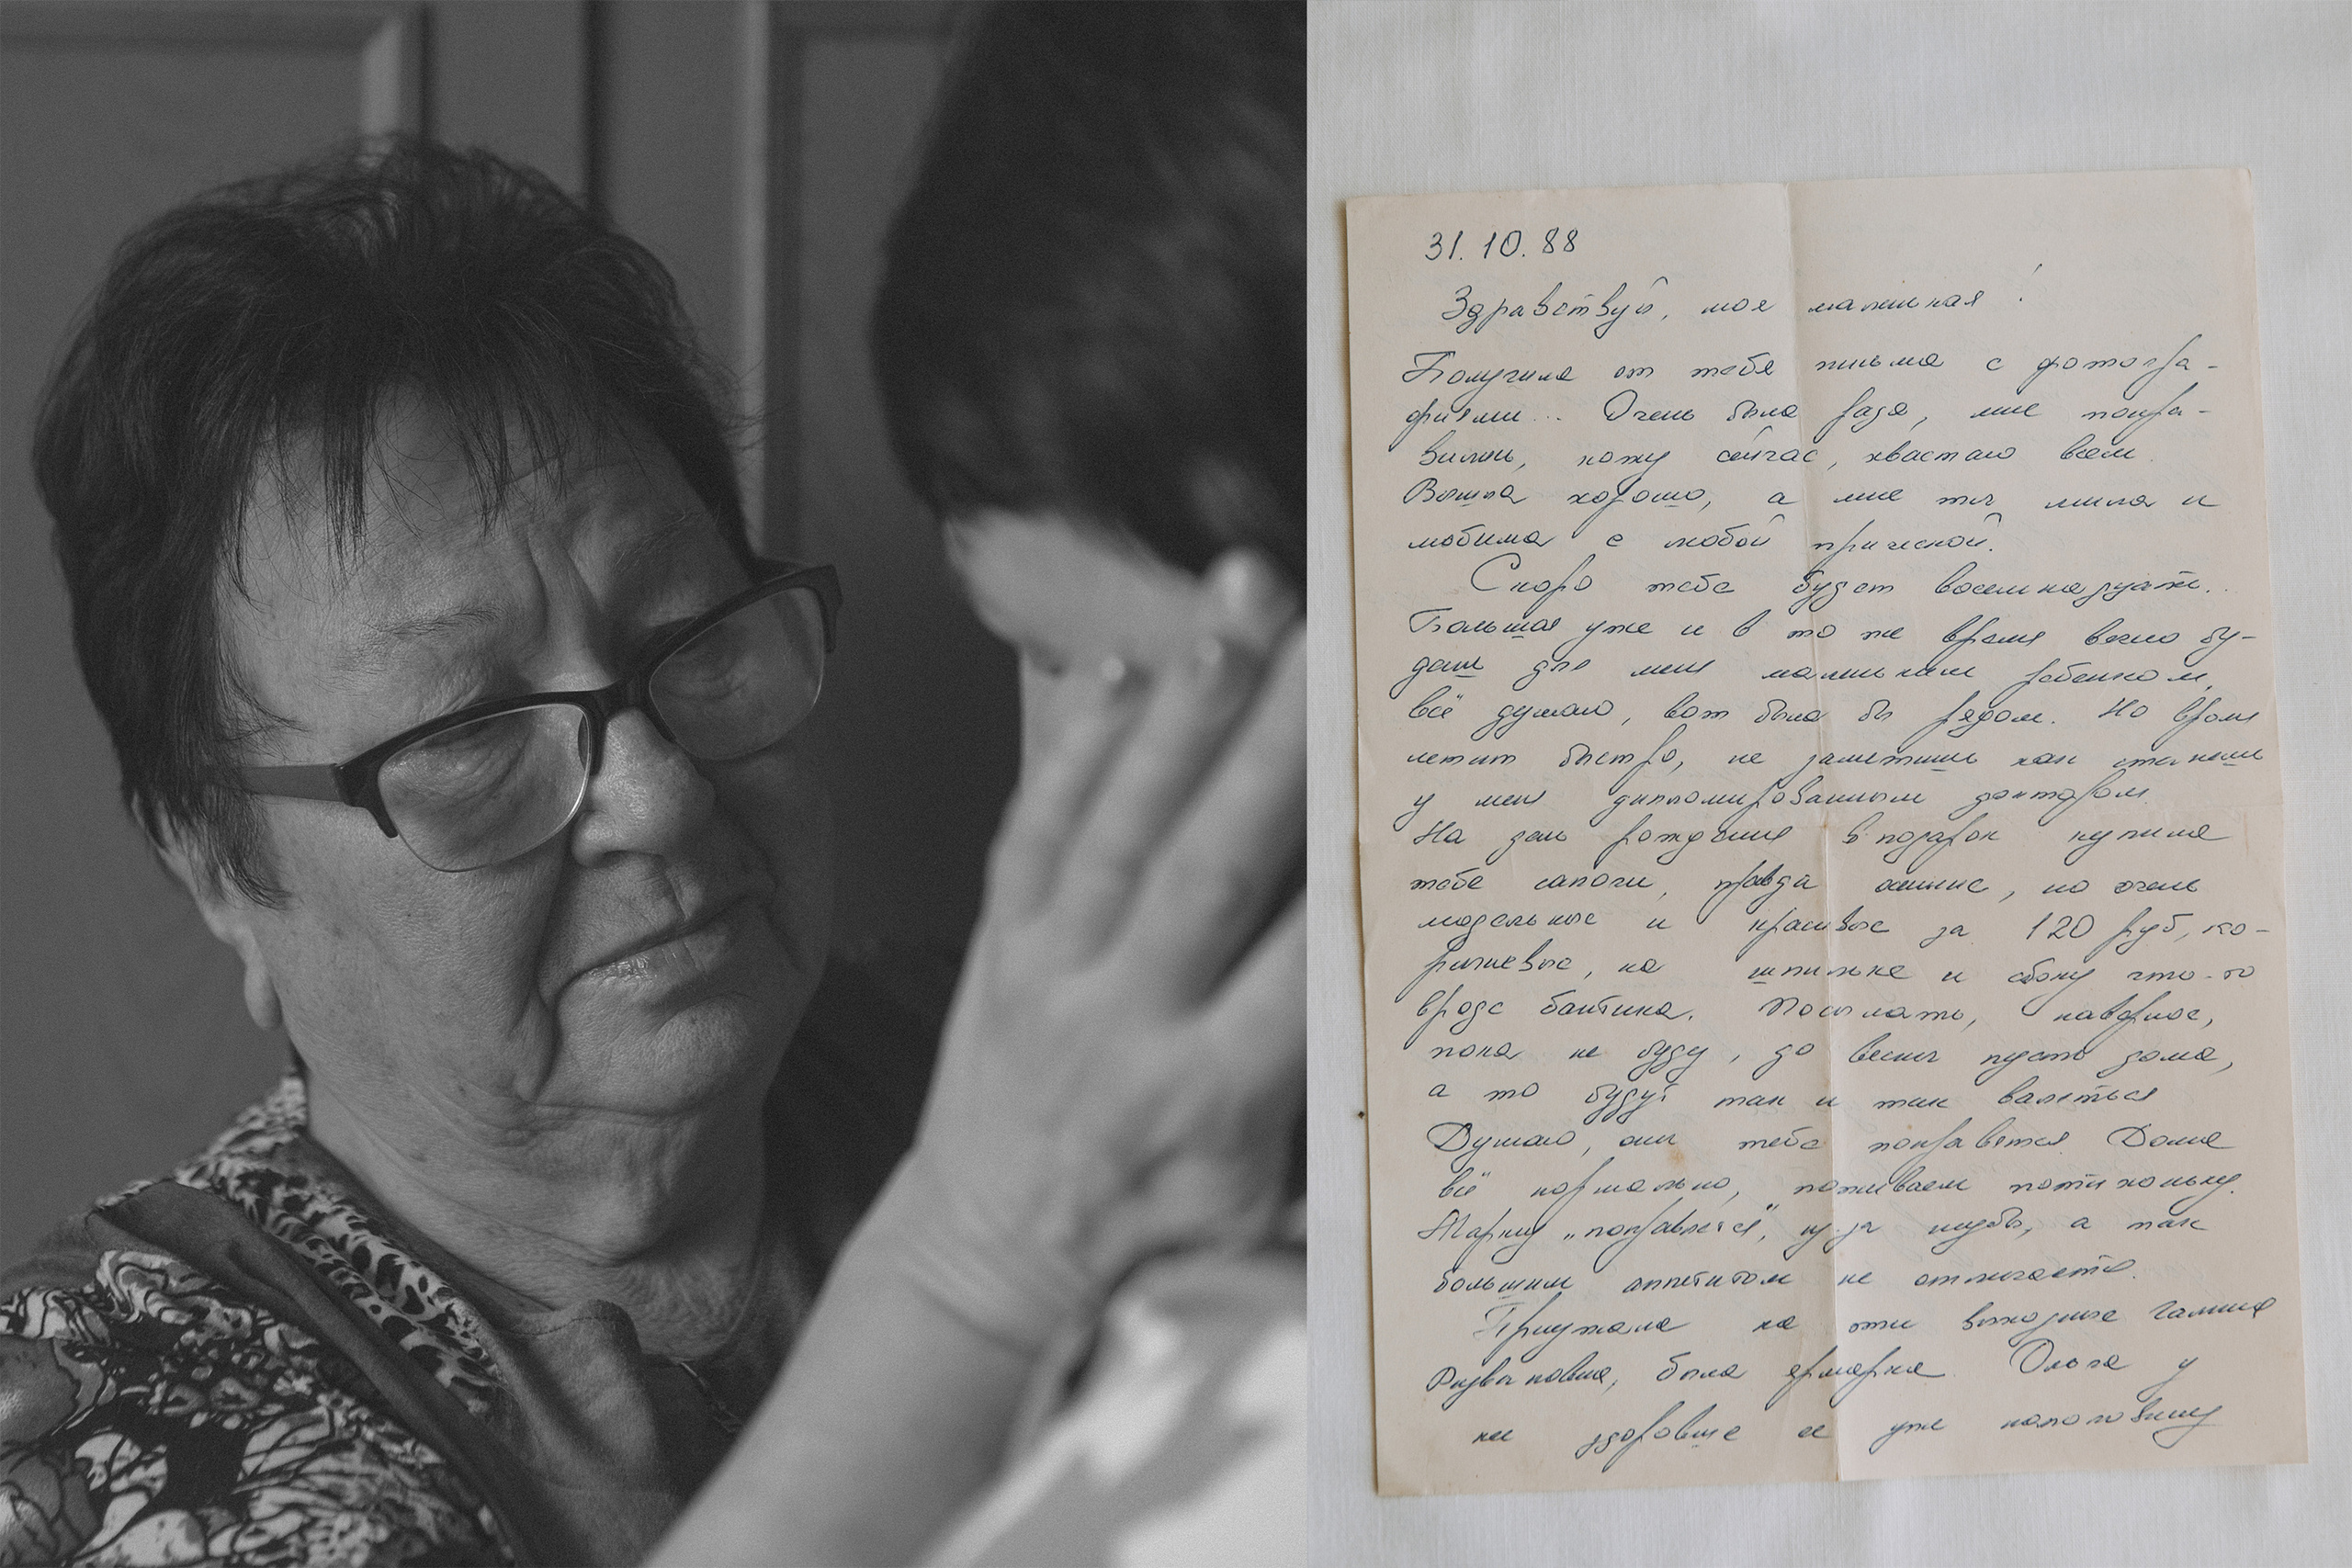 31.10.88
Здравствуй, моя маленькая!
Получила от тебя письмо с фотогра-
фиями... Очень была рада, мне понра-
вились, ношу сейчас, хвастаю всем.
Вышла хорошо, а мне ты мила и
любима с любой прической.
Скоро тебе будет восемнадцать..
Большая уже и в то же время вечно бу-
дешь для меня маленьким ребенком,
всё думаю, вот была бы рядом. Но время
летит быстро, не заметишь как станешь
у меня дипломированным доктором.
На день рождения в подарок купила
тебе сапоги, правда осенние, но очень
модельные и красивые за 120 руб, ко-
ричневые, на шпильке и сбоку что-то
вроде бантика. Посылать, наверное,
пока не буду, до весны пусть дома,
а то будут так и так валяться
Думаю, они тебе понравятся. Дома
всё нормально, поживаем потихоньку.
"поправляется", из-за шубы, а так
большим аппетитом не отличается.
Приезжала на эти выходные Галина
была ярмарка. Ольга у
них здоровые её уже наполовину